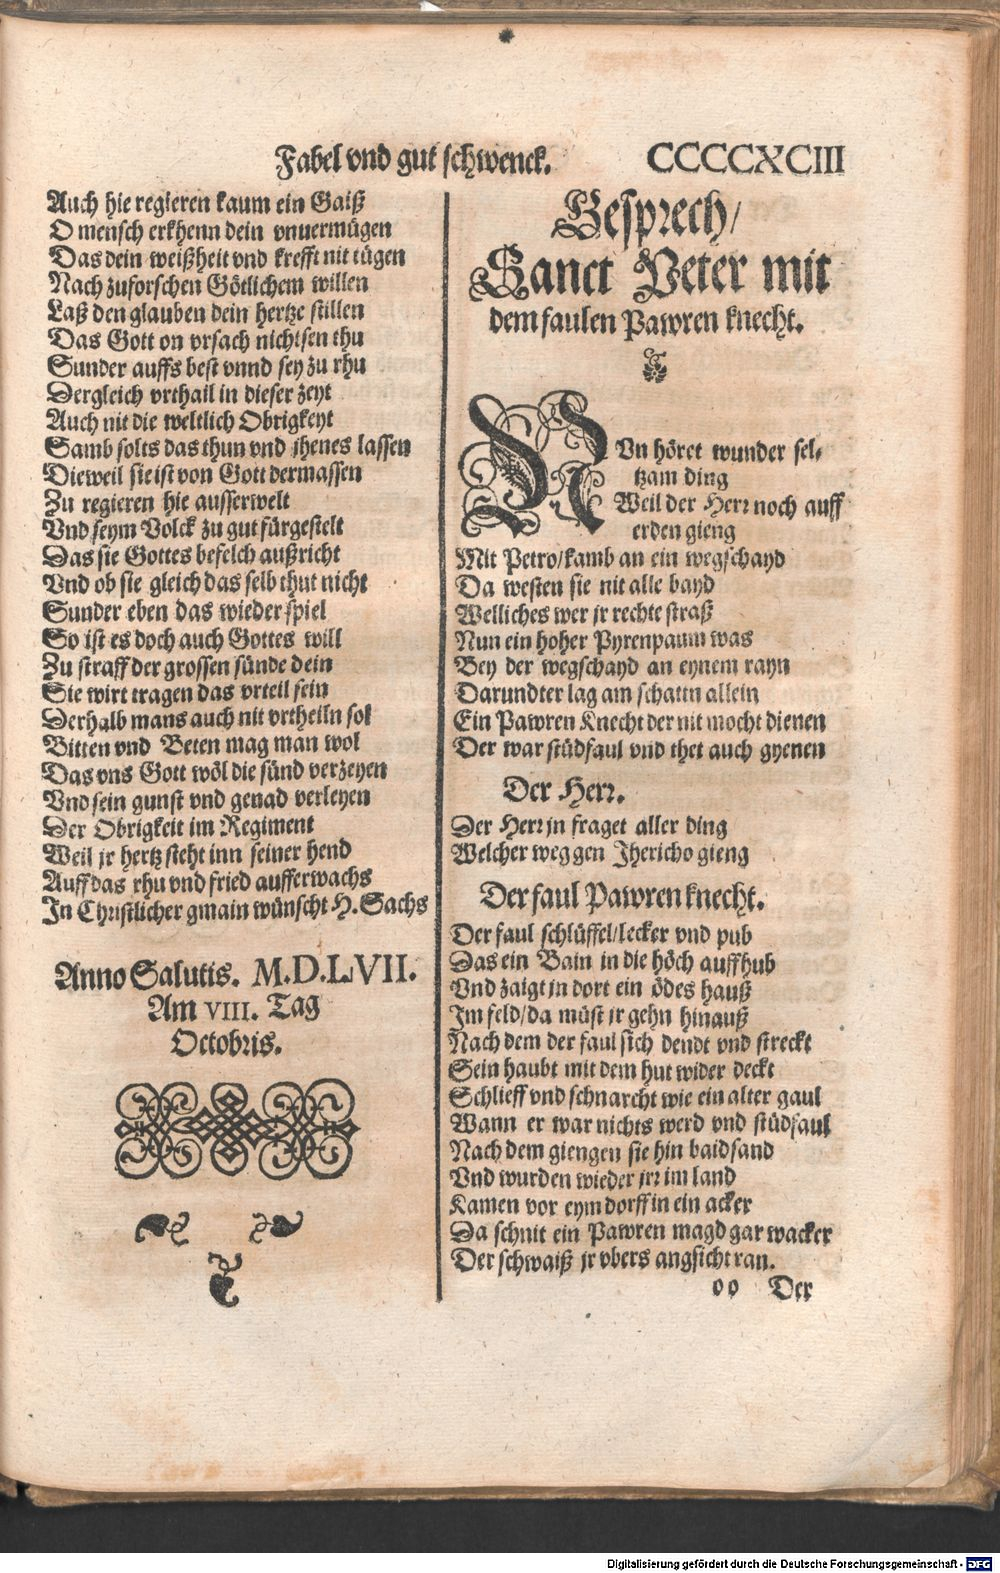 Fabel vnd gut schwenck. CCCCXCIII
Auch hie regieren kaum ein Gaiß
O mensch erkhenn dein vnuermügen
Das dein weißheit vnd krefft nit tügen
Nach zuforschen Götlichem willen
Laß den glauben dein hertze stillen
Das Gott on vrsach nichtsen thu
Sunder auffs best vnnd sey zu rhu
Dergleich vrthail in dieser zeyt
Auch nit die weltlich Obrigkeyt
Samb solts das thun vnd jhenes lassen
Dieweil sie ist von Gott dermassen
Zu regieren hie ausserwelt
Vnd seym Volck zu gut fürgestelt
Das sie Gottes befelch außricht
Vnd ob sie gleich das selb thut nicht
Sunder eben das wieder spiel
So ist es doch auch Gottes will
Zu straff der grossen sünde dein
Sie wirt tragen das vrteil sein
Derhalb mans auch nit vrtheiln sol
Bitten vnd Beten mag man wol
Das vns Gott wöl die sünd verzeyen
Vnd sein gunst vnd genad verleyen
Der Obrigkeit im Regiment
Weil jr hertz steht inn seiner hend
Auff das rhu vnd fried aufferwachs
In Christlicher gmain wünscht H. Sachs
Anno Salutis. M.D.LVII.
Am VIII. Tag
Octobris.
Gesprech/
Sanct Peter mit
dem faulen Pawren knecht.
NVn höret wunder sel-
tzam ding
Weil der Herr noch auff
erden gieng
Mit Petro/kamb an ein wegschayd
Da westen sie nit alle bayd
Welliches wer jr rechte straß
Nun ein hoher Pyrenpaum was
Bey der wegschayd an eynem rayn
Darundter lag am schattn allein
Ein Pawren Knecht der nit mocht dienen
Der war stüdfaul vnd thet auch gyenen
Der Herr.
Der Herr jn fraget aller ding
Welcher weg gen Jhericho gieng
Der faul Pawren knecht.
Der faul schlüffel/lecker vnd pub
Das ein Bain in die höch auffhub
Vnd zaigt in dort ein ödes hauß
Im feld/da müst jr gehn hinauß
Nach dem der faul sich dendt vnd streckt
Sein haubt mit dem hut wider deckt
Schlieff vnd schnarcht wie ein alter gaul
Wann er war nichts werd vnd stüdfaul
Nach dem giengen sie hin baidsand
Vnd wurden wieder jrr im land
Kamen vor eym dorff in ein acker
Da schnit ein Pawren magd gar wacker
Der schwaiß jr vbers angsicht ran.
oo Der
Digitalisierung gefördert durch die Deutsche Forschungsgemeinschaft - DFG